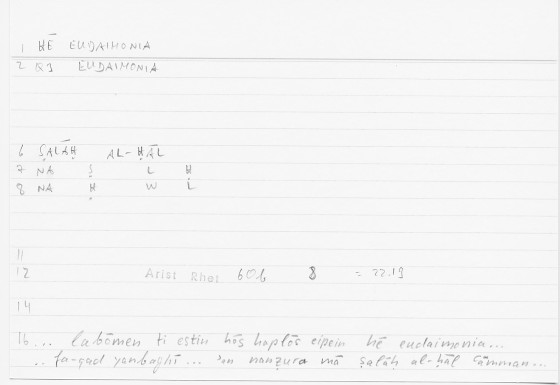 1 HĒ EUDAIMONIA
2 R3 EUDAIMONIA
6 ṢALĀḤ AL-ḤĀL
7 NA Ṣ L Ḥ
8 NA Ḥ W L
11
12 Arist Rhet 606 8 = 22.19
14
16 ... labōmen ti estin hōs haplōs eipein hē eudaimonia...
.. fa-qad yanbaghī ... an nanẓura mā ṣalāḥ al-ḥāl ʿāmman...